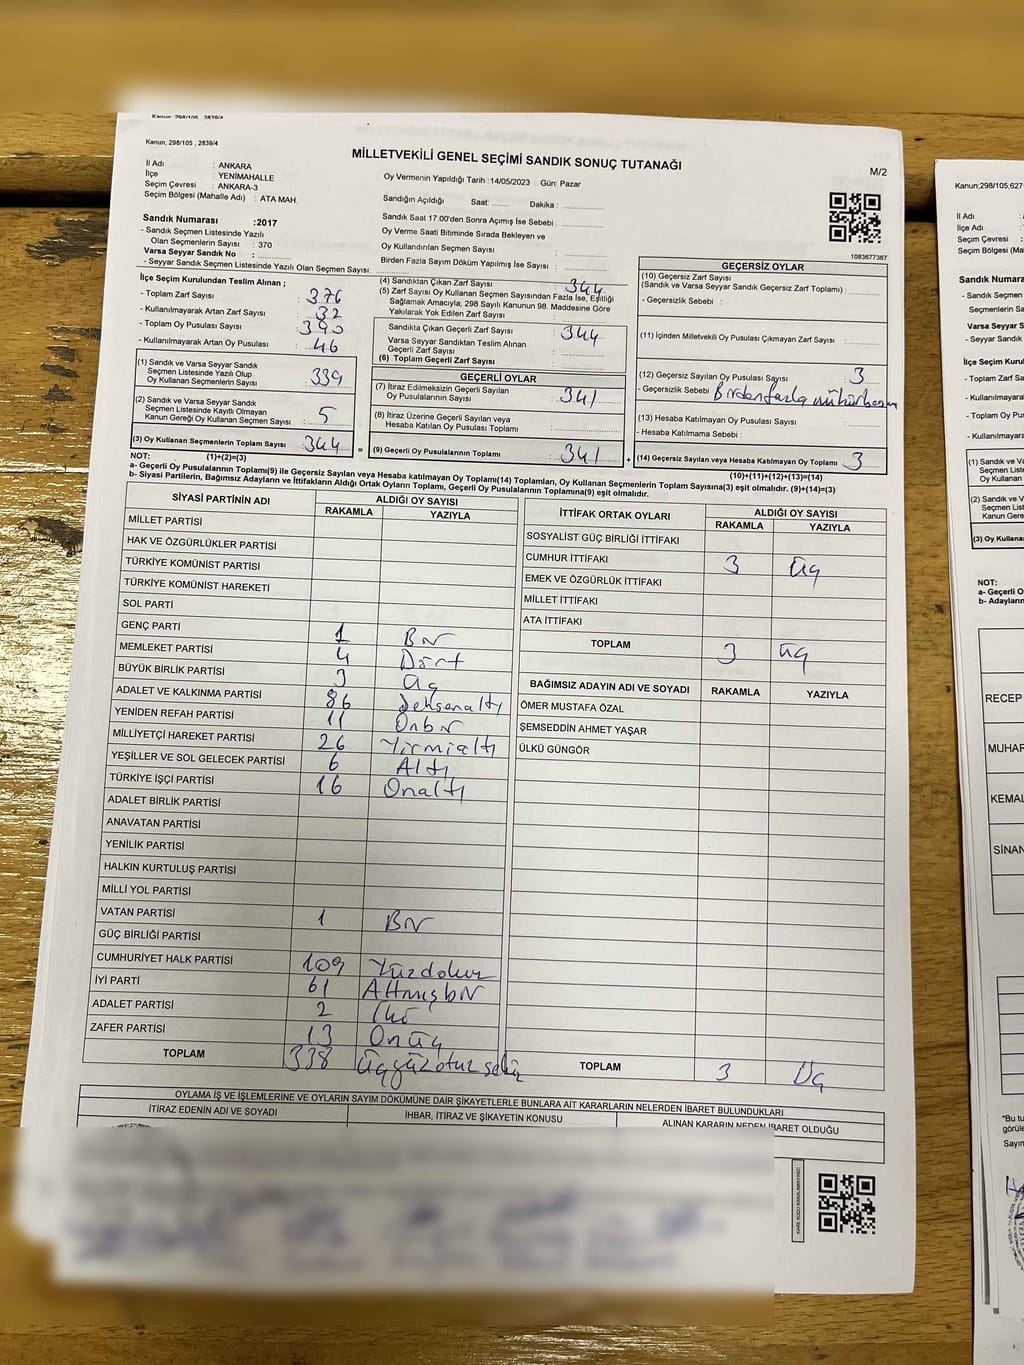 Kanun; 298/105 , 2839/4
Kanun; 298/105 , 2839/4
MİLLETVEKİLİ GENEL SEÇİMİ SANDIK SONUÇ TUTANAĞI
M/2
İl Adı : ANKARA
İlçe : YENİMAHALLE
Seçim Çevresi : ANKARA-3
Seçim Bölgesi (Mahalle Adı) : ATA MAH.
Oy Vermenin Yapıldığı Tarih :14/05/2023 Gün: Pazar
Sandığın Açıldığı Saat: ........ Dakika : ....................
Sandık Saat 17:00'den Sonra Açımış İse Sebebi : ....................
Oy Verme Saati Bitiminde Sırada Bekleyen ve
Oy Kullandırılan Seçmen Sayısı : ....................
Birden Fazla Sayım Döküm Yapılmış İse Sayısı : ....................
1083677367
Sandık Numarası :2017
- Sandık Seçmen Listesinde Yazılı
Olan Seçmenlerin Sayısı : 370
Varsa Seyyar Sandık No : ....................
- Seyyar Sandık Seçmen Listesinde Yazılı Olan Seçmen Sayısı: ..........
İlçe Seçim Kurulundan Teslim Alınan ;
- Toplam Zarf Sayısı : 376
- Kullanılmayarak Artan Zarf Sayısı : 32
- Toplam Oy Pusulası Sayısı : 390
- Kullanılmayarak Artan Oy Pusulası : 46
(1) Sandık ve Varsa Seyyar Sandık
Seçmen Listesinde Yazılı Olup
Oy Kullanan Seçmenlerin Sayısı : 339
(2) Sandık ve Varsa Seyyar Sandık
Seçmen Listesinde Kayıtlı Olmayan
Kanun Gereği Oy Kullanan Seçmen Sayısı : 5
(3) Oy Kullanan Seçmenlerin Toplam Sayısı : 344
(4) Sandıktan Çıkan Zarf Sayısı : 344
(5) Zarf Sayısı Oy Kullanan Seçmen Sayısından Fazla İse, Eşitliği
Sağlamak Amacıyla; 298 Sayılı Kanunun 98. Maddesine Göre
Yakılarak Yok Edilen Zarf Sayısı :
Sandıkta Çıkan Geçerli Zarf Sayısı : 344
Varsa Seyyar Sandıktan Teslim Alınan
Geçerli Zarf Sayısı :
(6) Toplam Geçerli Zarf Sayısı :
GEÇERLİ OYLAR
(7) İtiraz Edilmeksizin Geçerli Sayılan
Oy Pusulalarının Sayısı : 341
(8) İtiraz Üzerine Geçerli Sayılan veya
Hesaba Katılan Oy Pusulası Toplamı :
= (9) Geçerli Oy Pusulalarının Toplamı : 341 +
GEÇERSİZ OYLAR
(10) Geçersiz Zarf Sayısı
(Sandık ve Varsa Seyyar Sandık Geçersiz Zarf Toplamı) :
- Geçersizlik Sebebi :
(11) İçinden Milletvekili Oy Pusulası Çıkmayan Zarf Sayısı :
(12) Geçersiz Sayılan Oy Pusulası Sayısı : 3
- Geçersizlik Sebebi : Birden fazla mühürbasım
(13) Hesaba Katılmayan Oy Pusulası Sayısı :
- Hesaba Katılmama Sebebi :
(14) Geçersiz Sayılan veya Hesaba Katılmayan Oy Toplamı : 3
NOT: (1)+(2)=(3)
(10)+(11)+(12)+(13)=(14)
a- Geçerli Oy Pusulalarının Toplamı(9) ile Geçersiz Sayılan veya Hesaba katılmayan Oy Toplamı(14) Toplamları, Oy Kullanan Seçmenlerin Toplam Sayısına(3) eşit olmalıdır. (9)+(14)=(3)
b- Siyasi Partilerin, Bağımsız Adayların ve İttifakların Aldığı Ortak Oyların Toplamı, Geçerli Oy Pusulalarının Toplamına(9) eşit olmalıdır.
SİYASİ PARTİNİN ADI ALDIĞI OY SAYISI
RAKAMLA YAZIYLA
MİLLET PARTİSİ
HAK VE ÖZGÜRLÜKLER PARTİSİ
TÜRKİYE KOMÜNİST PARTİSİ
TÜRKİYE KOMÜNİST HAREKETİ
SOL PARTİ
GENÇ PARTİ 1 Bir
MEMLEKET PARTİSİ 4 Dört
BÜYÜK BİRLİK PARTİSİ 3 Üç
ADALET VE KALKINMA PARTİSİ 86 Seksenaltı
YENİDEN REFAH PARTİSİ 11 Onbir
MİLLİYETÇİ HAREKET PARTİSİ 26 Yirmialtı
YEŞİLLER VE SOL GELECEK PARTİSİ 6 Altı
TÜRKİYE İŞÇİ PARTİSİ 16 Onaltı
ADALET BİRLİK PARTİSİ
ANAVATAN PARTİSİ
YENİLİK PARTİSİ
HALKIN KURTULUŞ PARTİSİ
MİLLİ YOL PARTİSİ
VATAN PARTİSİ 1 Bir
GÜÇ BİRLİĞİ PARTİSİ
CUMHURİYET HALK PARTİSİ 109 Yüzdokuz
İYİ PARTİ 61 Altmışbir
ADALET PARTİSİ 2 İki
ZAFER PARTİSİ 13 Onüç
TOPLAM 338 Üçyüzotuzsekiz
İTTİFAK ORTAK OYLARI ALDIĞI OY SAYISI
RAKAMLA YAZIYLA
SOSYALİST GÜÇ BİRLİĞİ İTTİFAKI
CUMHUR İTTİFAKI 3 Üç
EMEK VE ÖZGÜRLÜK İTTİFAKI
MİLLET İTTİFAKI
ATA İTTİFAKI
TOPLAM 3 Üç
BAĞIMSIZ ADAYIN ADI VE SOYADI RAKAMLA YAZIYLA
ÖMER MUSTAFA ÖZAL
ŞEMSEDDİN AHMET YAŞAR
ÜLKÜ GÜNGÖR
TOPLAM 3 Üç
OYLAMA İŞ VE İŞLEMLERİNE VE OYLARIN SAYIM DÖKÜMÜNE DAİR ŞİKAYETLERLE BUNLARA AİT KARARLARIN NELERDEN İBARET BULUNDUKLARI
İTİRAZ EDENİN ADI VE SOYADI İHBAR, İTİRAZ VE ŞİKAYETİN KONUSU ALINAN KARARIN NEDEN İBARET OLDUĞU
Kanun;298/105,627
İl Adı
İlçe Adı
Seçim Çevresi
Seçim Bölgesi (M
Sandık Numarası
- Sandık Seçmen
Seçmenlerin Sa
Varsa Seyyar Sand
- Seyyar Sandık
İlçe Seçim Kurulu
- Toplam Zarf Sa
- Kullanılmayara
- Toplam Oy Pus
- Kullanılmayara
(1) Sandık ve Va
Seçmen Liste
Oy Kullanan
(2) Sandık ve V
Seçmen List
Kanun Gere
(3) Oy Kullana
NOT:
a- Geçerli O
b- Adayların
RECEP
MUHAR
KEMAL
SİNAN
"Bu tu
görüle
Sayım